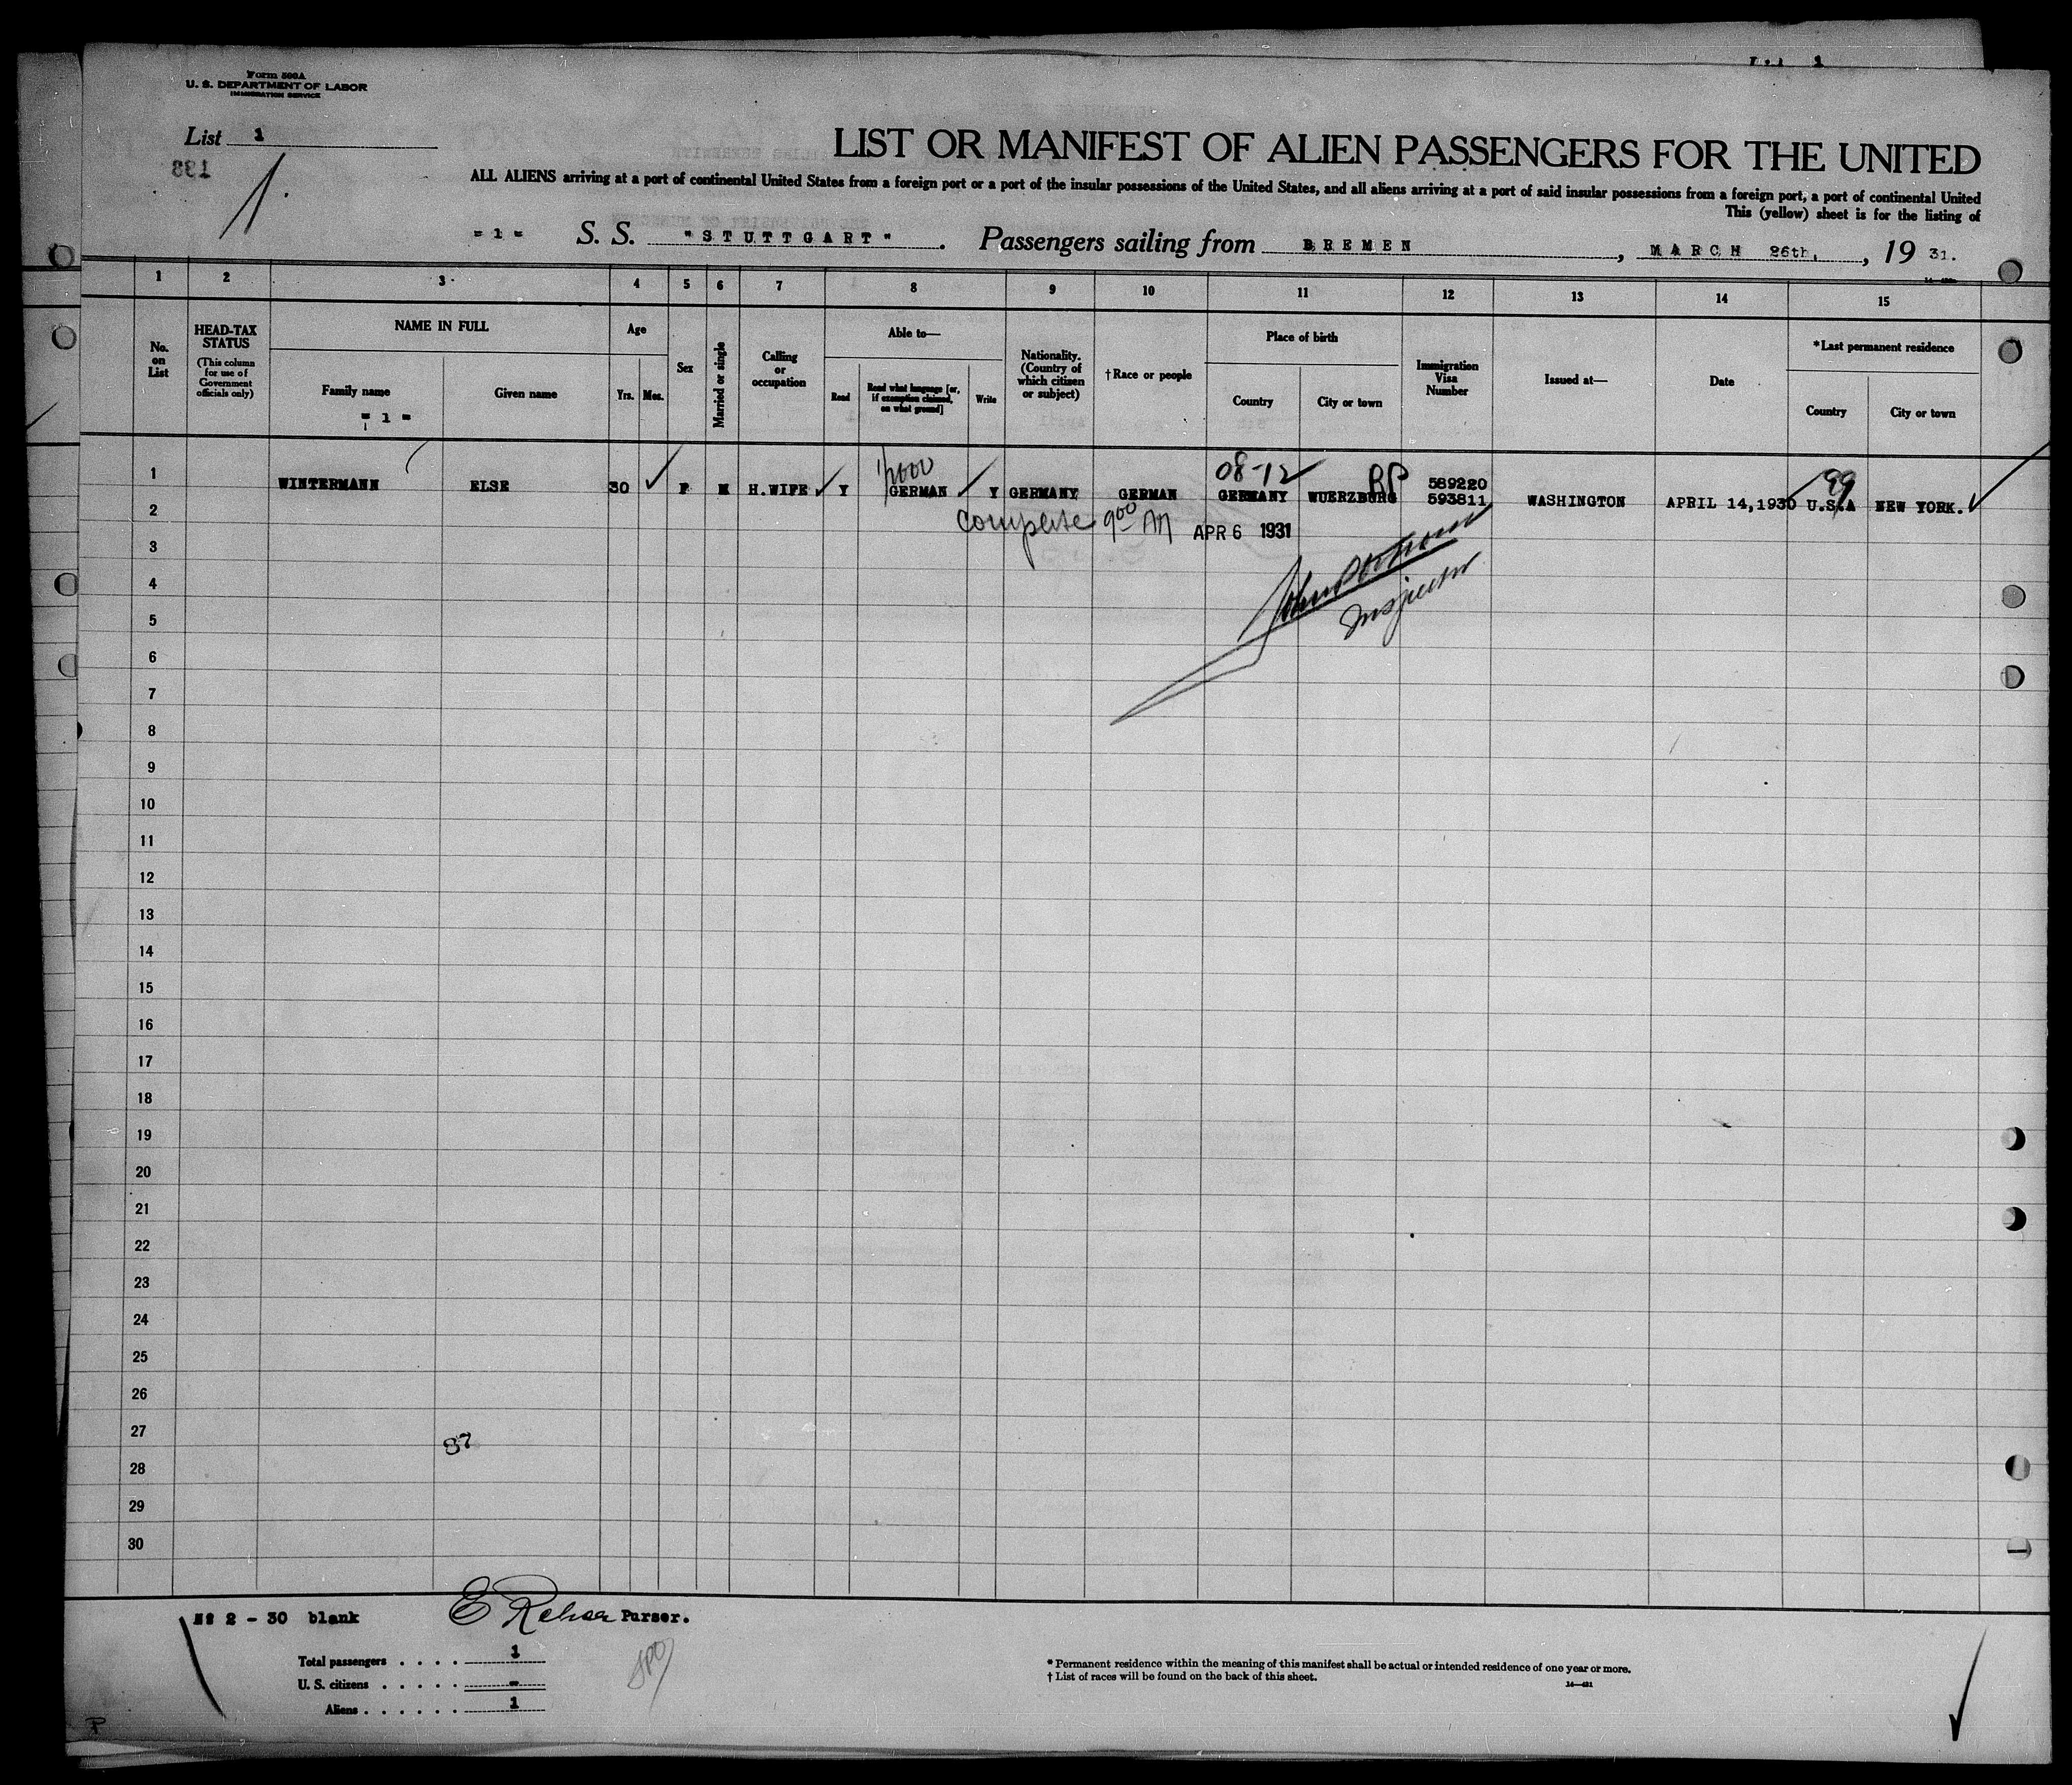 Form 500A
U. S. DEPARTMENT OF LABOR
IMMIGRATION SERVICE
List 1
138
1.
LIST OR MANIFEST OF ALIEN PASSENGERS FOR THE UNITED
ALL ALIENS arriving at a port of continental United States from a foreign port or a port of the insular possessions of the United States, and all aliens arriving at a port of said insular possessions from a foreign port, a port of continental United
This (yellow) sheet is for the listing of
- 1 - S. S. "STUTTGART" . Passengers sailing from BREMEN , MARCH 26th, , 19 31.
1 2 3 4 5 6 7 8 9 10 11 12 13 14 15
No. on List
HEAD-TAX STATUS
(This column for use of Government officials only)
NAME IN FULL
Family name
- 1 -
Given name
Age
Yrs. Mos.
Sex
Married or single
Calling or occupation
Able to—
Read
Read what language [or, if exemption claimed, on what ground]
Write
Nationality. (Country of which citizen or subject)
†Race or people
Place of birth
Country
City or town
Immigration Visa Number
Issued at—
Date
*Last permanent residence
Country
City or town
08-12 99
589220
1 WINTERMANN ELSE 30 F M H.WIFE Y GERMAN Y GERMANY GERMAN GERMANY WUERZBURG 593811 WASHINGTON APRIL 14,1930 U.S.A NEW YORK.
2 Complete 9 00 AM APR 6 1931
3
4
Inspector
5
6
7
8
9
10
11
12
13
14
15
16
17
18
19
20
21
22
23
24
25
26
27
87
28
29
30
№ 2 - 30 blank Purser.
Total passengers . . . . 1
U. S. citizens . . . . . -
Aliens . . . . . . 1
* Permanent residence within the meaning of this manifest shall be actual or intended residence of one year or more.
† List of races will be found on the back of this sheet.
P